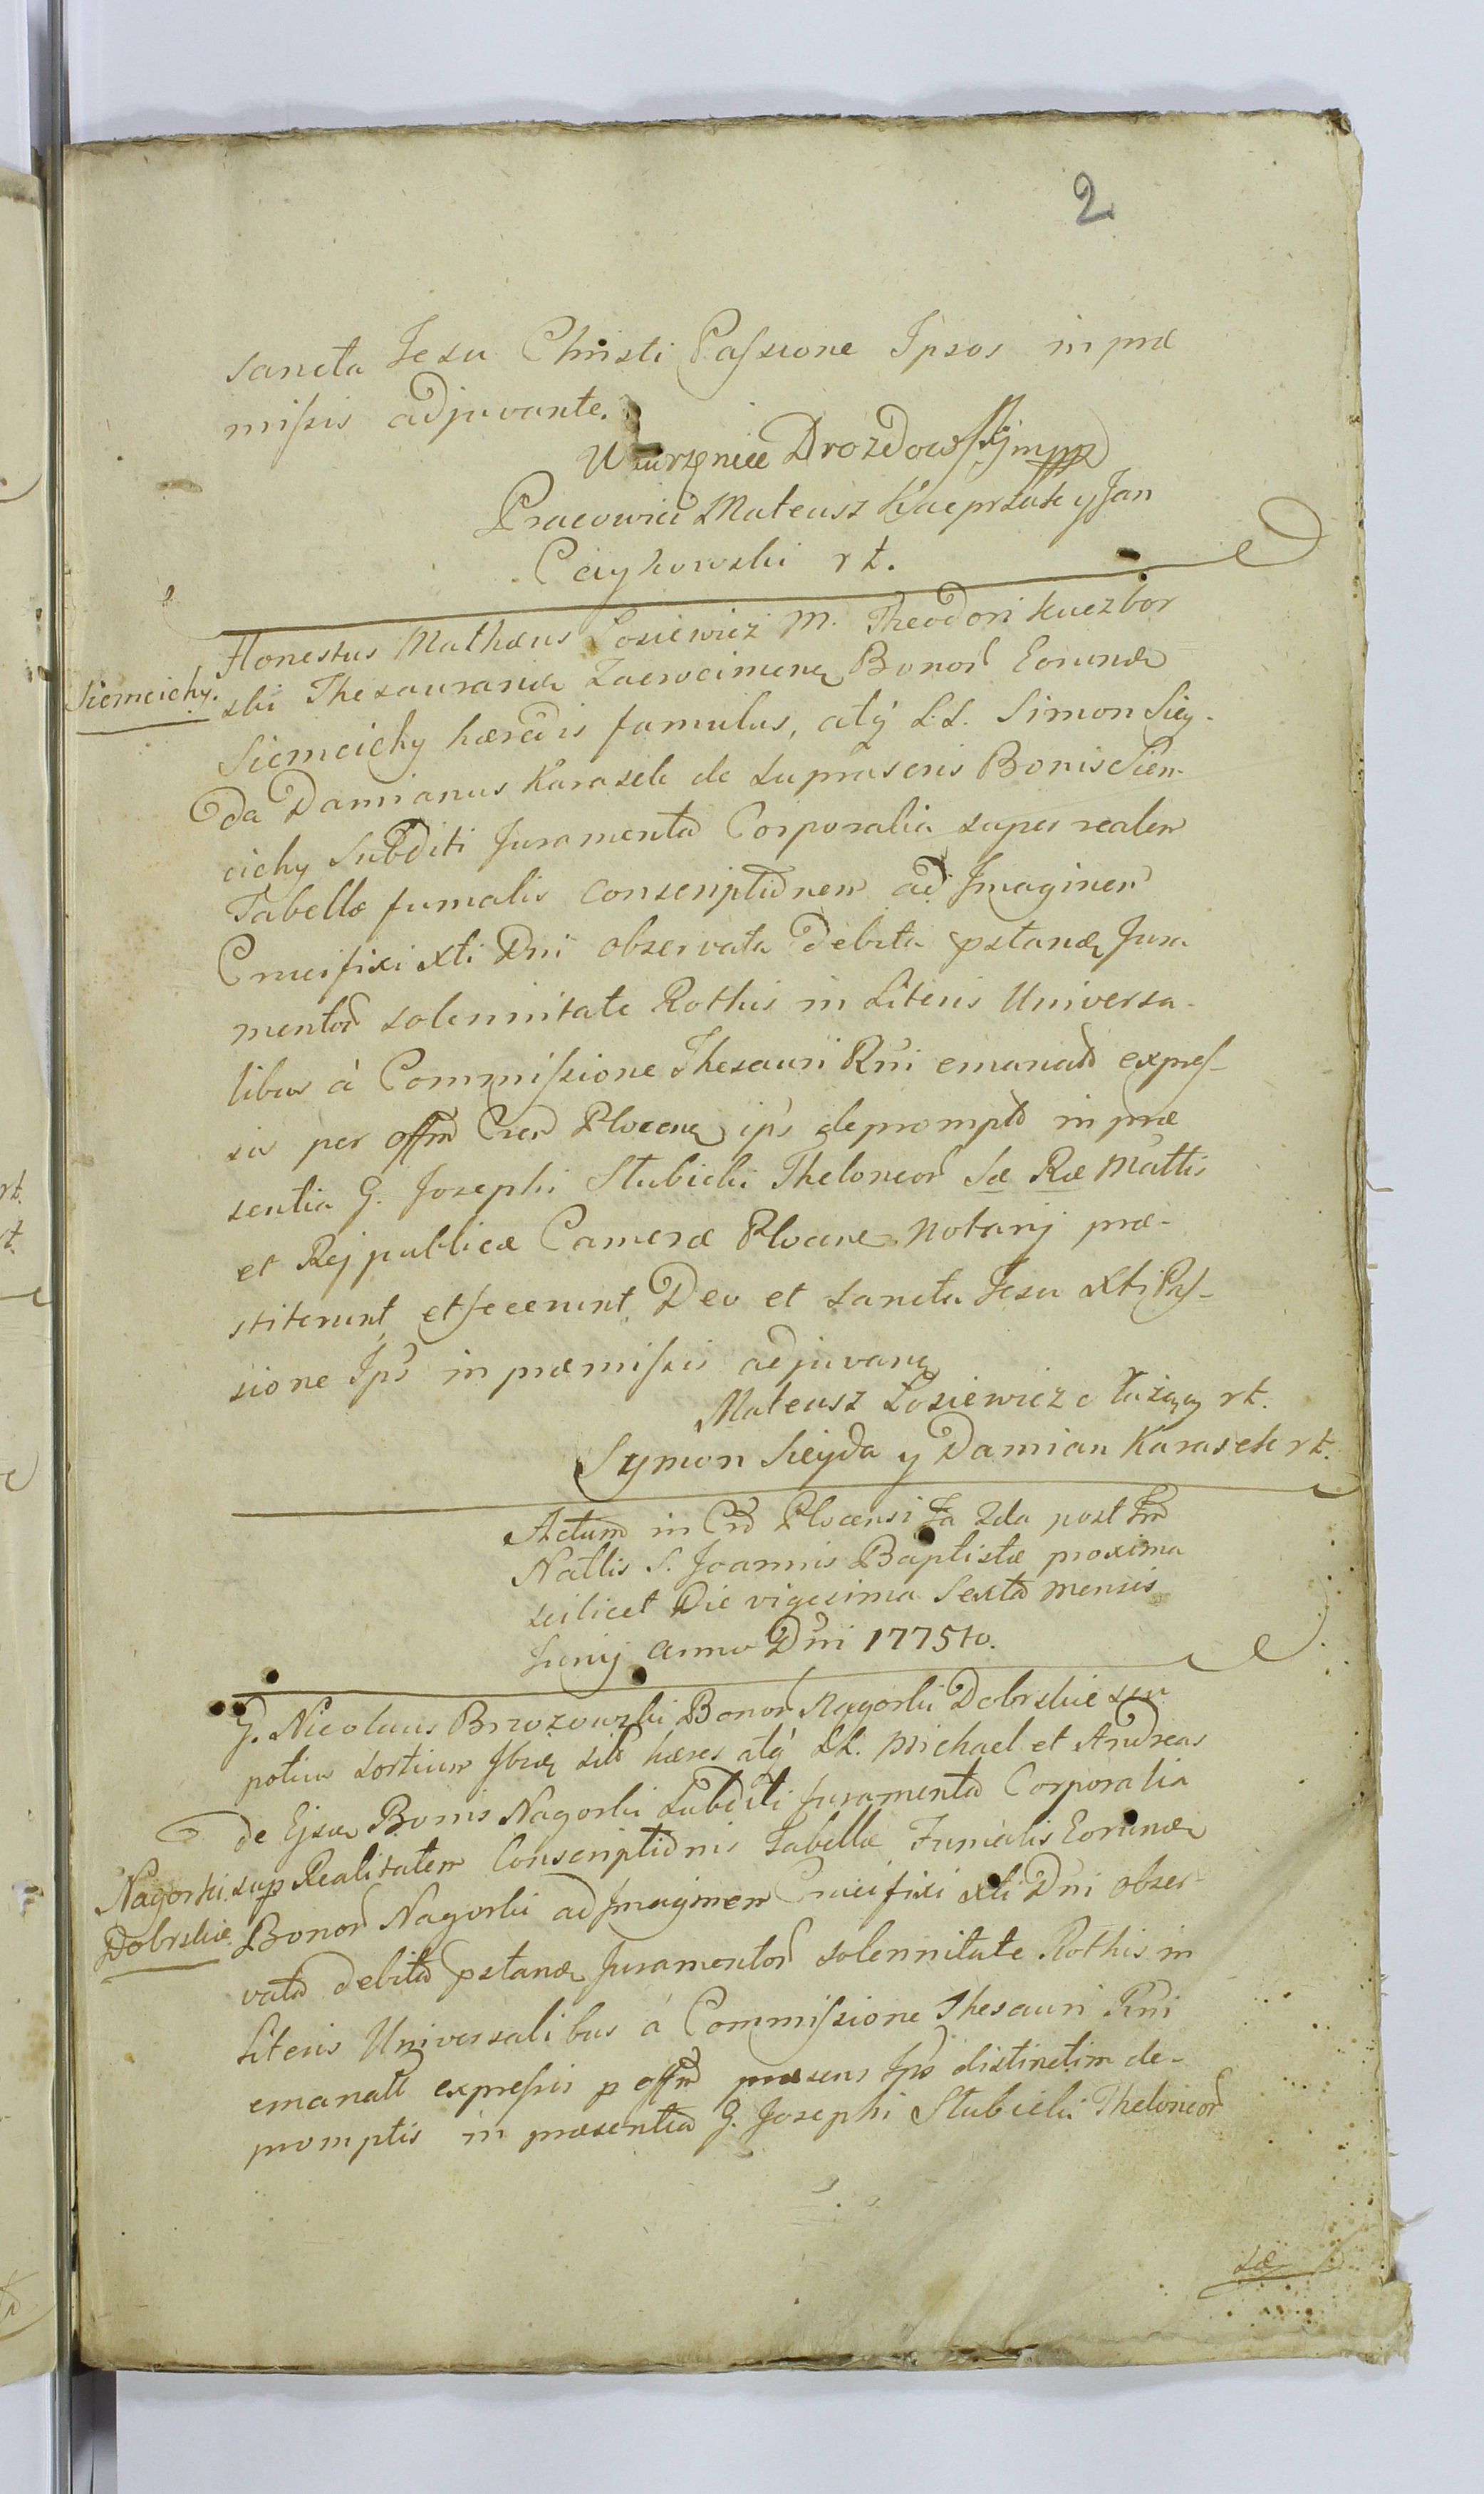 2
sancta Jesu Christi Passione Ipsos in præ
missis adjuvante.
Wawrzeniec Drozdowskj mpp
Pracowici Mateusz Kacprzak y Jan
Caykowski rt.
Honestus Mathæus Łosiewicz M. Theodori Kuczbor
Siemcichy.
ski Thesaurarii Zawscimen Bonor Eorund
Siemcichy hæredis famulus, atq L.L. Simon Siey-
da Damianus Karasek de supra seris Bonis Siem-
cichy Subditi Juramenta Corporalia super realem
Tabellæ fumalis Conscriptionem ad Imaginem
Crucifixi Xti Dni observata debita pstand Jura
mentor solennitate Rothis in Literis Universa-
libus à Commissione Thesauri Rni emanat expres-
sis per offm Cren Plocen ips deprompt in præ
sentia G. Josephi Stubicki Theloneor Sæ Ræ Mattis
et Rejpublicæ Cameræ Plocen Notarij præ-
stiterunt et fecerunt Deo et sancta Jesu Xti Pas-
sione Ips in præmissis adjuvan
Mateusz Łosiewicz służąy rt.
Szymon Sieyda y Damian Karasek rt.
Actum in Crd Plocensi Fa 2da post Fm
Natlis S. Joannis Baptistæ proxima
scilicet Die vigesima Sexta mensis
Junij Anno Dni 1775to.
G. Nicolaus Brzozowski Bonor Nagorki Dobrskie seu
potius sortium Ibid sit hæres atq LL. Michael et Andreas
de Ejsd Bonis Nagorki Subditi Juramenta Corporalia
Nagorki
sup Realitatem Conscriptionis Tabellæ Fumalis Eorund
Dobrskie
Bonor Nagorki ad Imaginem Crucifixi Xti Dni obser-
vata debita pstand Juramentor solennitate Rothis in
Literis Universalibus à Commissione Thesauri Rni
emanatt expressis p offm præsens Ips distinctim de-
promptis in præsentia G. Josephi Stubicki Theloneor
Sæ